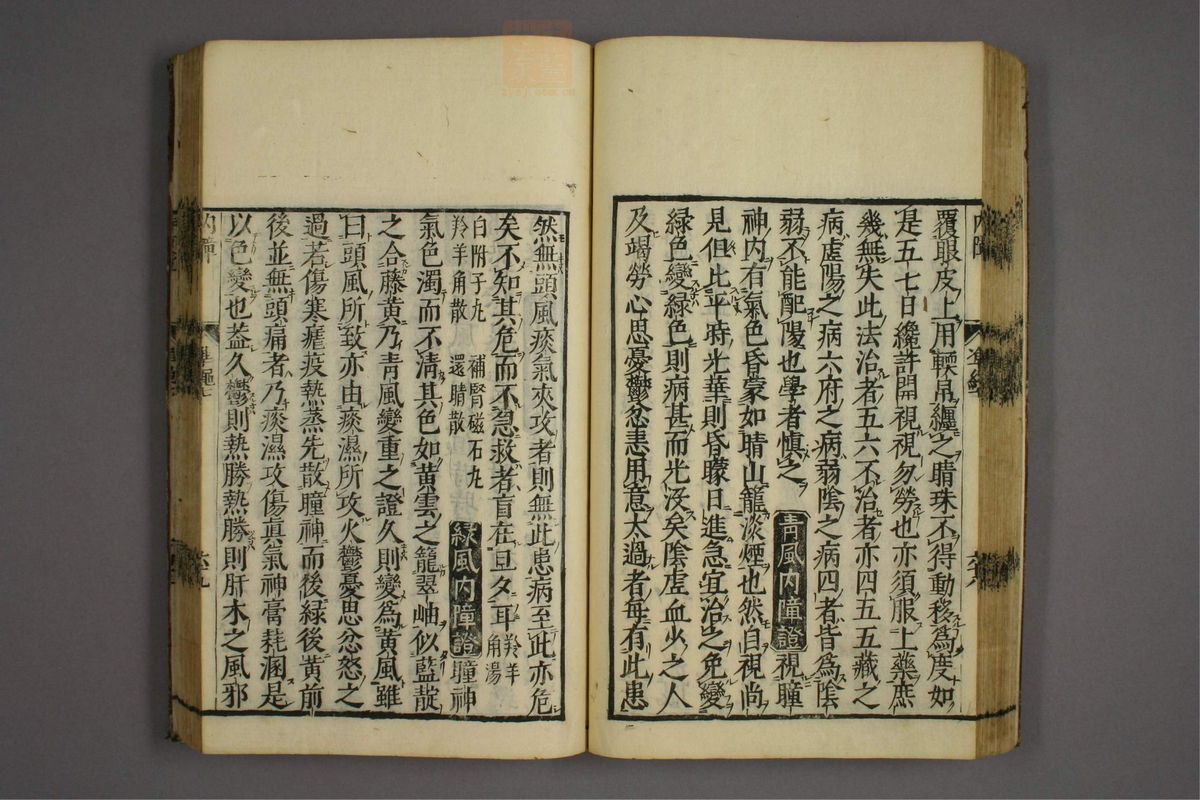 覆眼皮上用輭帛纏之睛珠不得動移為度如
是五七日纔許開視視勿勞也亦須服上藥庶
幾無失此法治者五六不治者亦四五五藏之
病虛陽之病六府之病弱陰之病四者皆為陰
弱不能配陽也學者慎之
青風内障證 視瞳
神内有氣色昏蒙如晴山籠淡煙也然自視尚
見但比平時光華則昏矇日進急宜治之免變
綠色變綠色則病甚而光没矣陰虛血少之人
及竭勞心思憂鬱忿恚用意太過者每有此患
然無頭風痰氣夾攻者則無此患病至此亦危
矣不知其危而不急救者盲在旦夕耳 羚羊角湯
白附子丸 補腎磁石丸
羚羊角散 還睛散
綠風内障證 瞳神
氣色濁而不清其色如黃雲之籠翠岫似藍靛
之合藤黃乃青風變重之證久則變為黃風雖
曰頭風所致亦由痰濕所攻火鬱憂思忿怒之
過若傷寒瘧疫熱蒸先散瞳神而後綠後黃前
後並無頭痛者乃痰濕攻傷眞氣神膏耗涸是
以色變也蓋久鬱則熱勝熱勝則肝木之風邪
内障